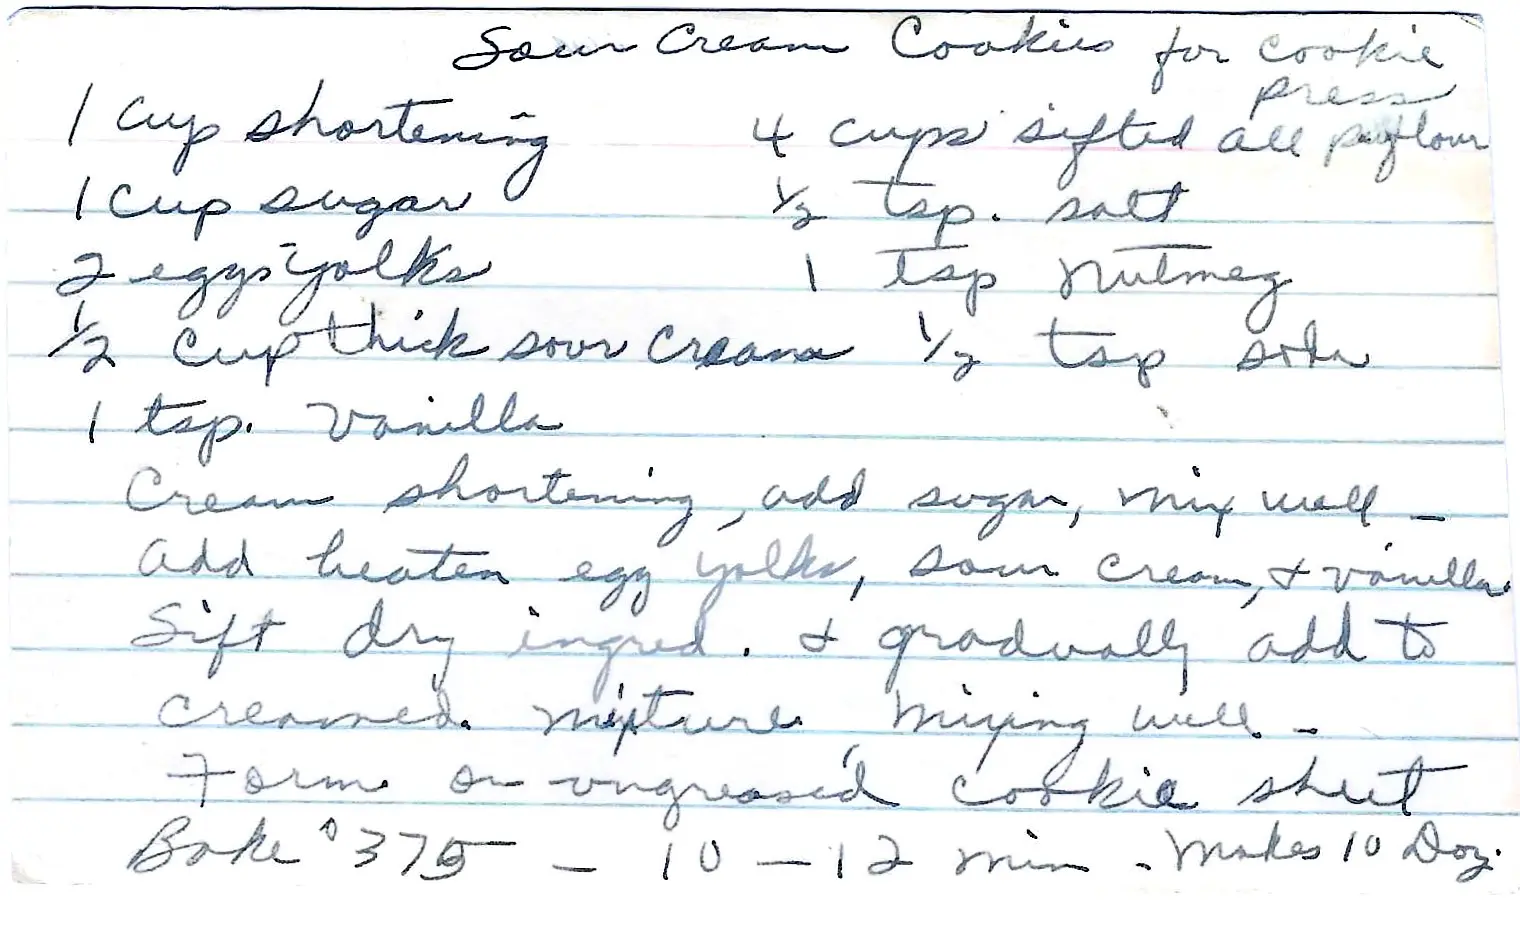 Sour Cream Cookies for cookie
press
1 cup shortening 4 cups sifted all pur flour
1 cup sugar 1/2 tsp. salt
2 eggs yolks 1 tsp nutmeg
1/2 cup thick sour cream 1/2 tsp soda
1 tsp. vanilla
Cream shortening, add sugar, mix well -
add beaten egg yolks, sour cream, & vanilla
Sift dry ingred. & gradually add to
creamed mixture, mixing well. -
Form on ungreased cookie sheet
Bake ° 375 - 10 - 12 min - Makes 10 Doz.